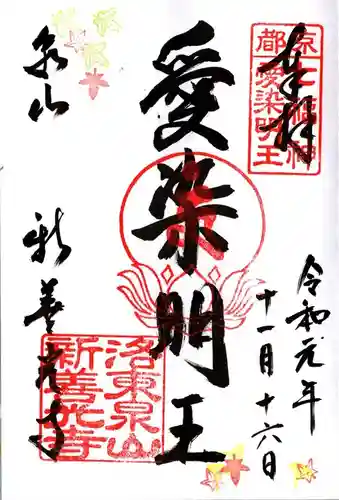 奉拝
京都七福神
愛染明王
令和元年
十一月十六日
愛染明王
泉山
新善光寺
洛東泉山
新善光寺